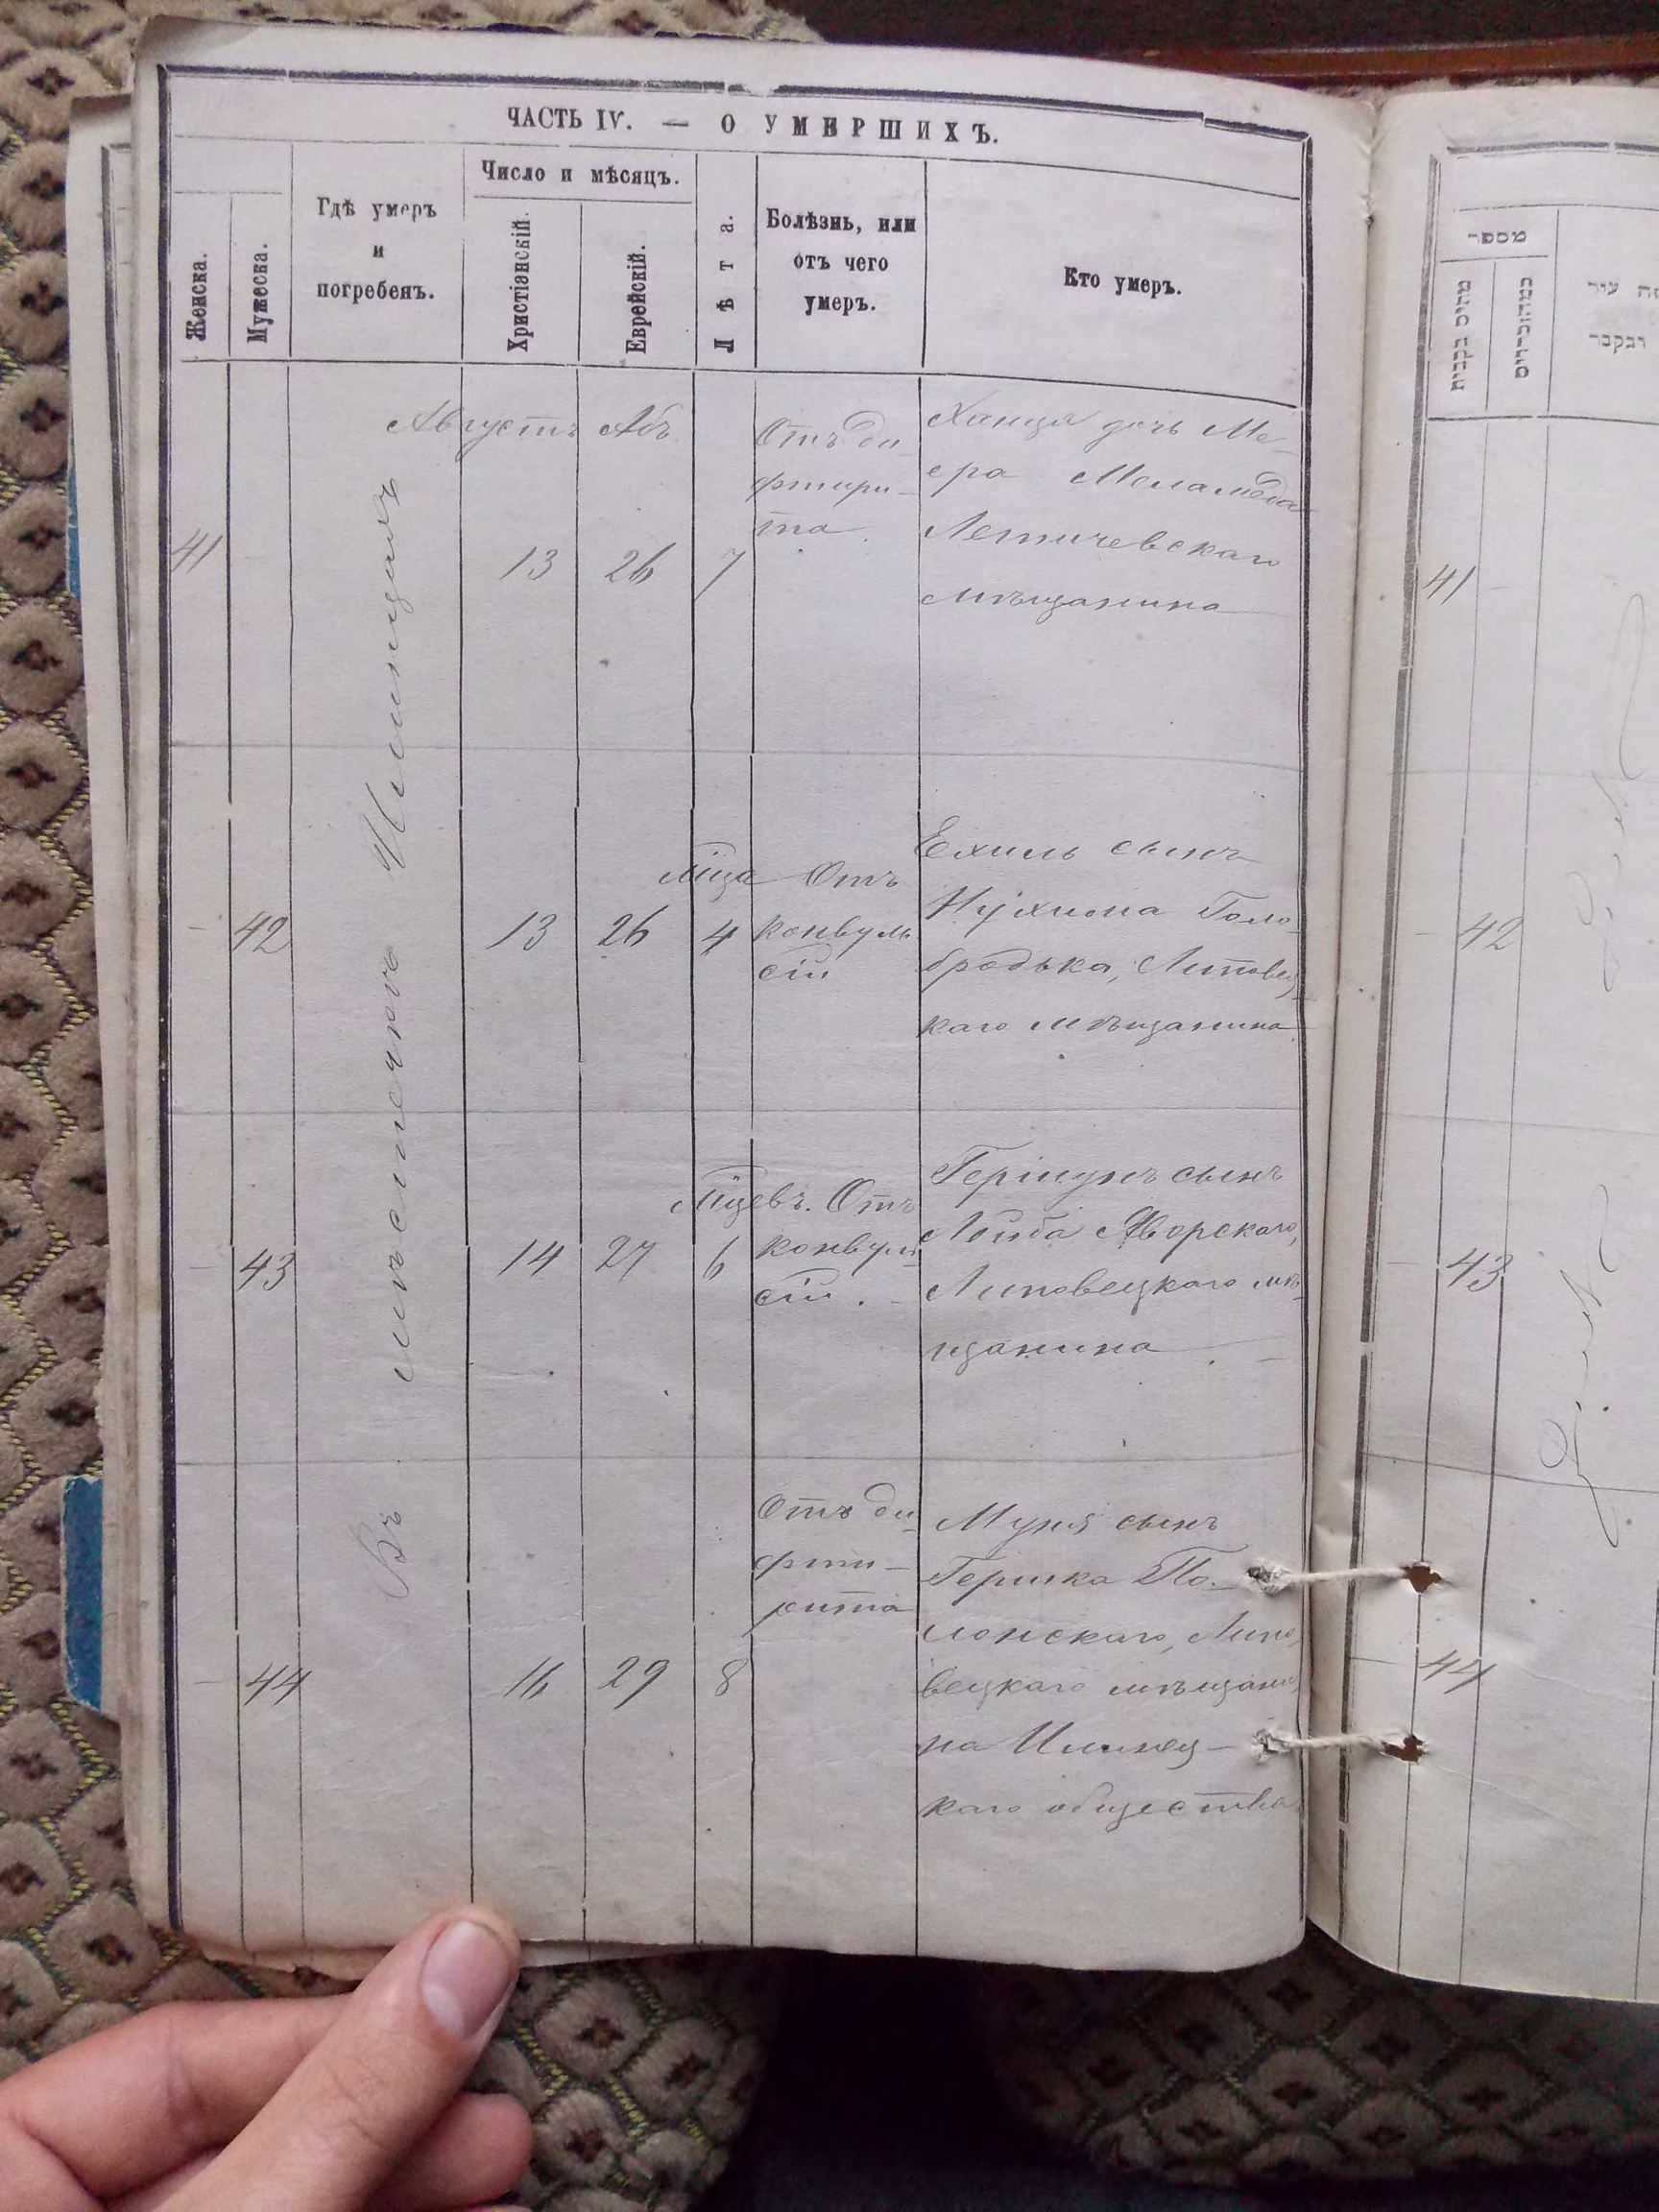 ЧАСТЬ IV. — О УМЕРШИХЪ.
Женска.
Мужеска.
Гдѣ умеръ
и
погребенъ.
Число и мѣсяцъ.
Христіанскій.
Еврейскій.
Лѣта.
Болѣзнь, или
отъ чего
умеръ.
Кто умеръ.
Въ мѣстечкѣ Илинцахъ
Августъ Абъ
41
13 26 7
Отъ ди-
фтири-
та.
Ханця дочь Ме-
ера Меламеда
Летичевскаго
мѣщанина
- 42
13 26
мѣца
4
Отъ
конвуль
сіи
Ехиль сынъ
Нухима Голо-
бродька, Липовец-
каго мѣщанина
- 43
14 27
мѣцевъ.
6
Отъ
конвуль
сіи. -
Гершунъ сынъ
Лейба Яворскаго,
Липовецкаго мѣ-
щанина
- 44
16 29 8
Отъ ди-
фти-
рита
Муня сынъ
Гершка По-
лонскаго, Липо-
вецкаго мѣщани-
на Илинец-
каго общества
מספר
41 -
- 42
- 43
- 44